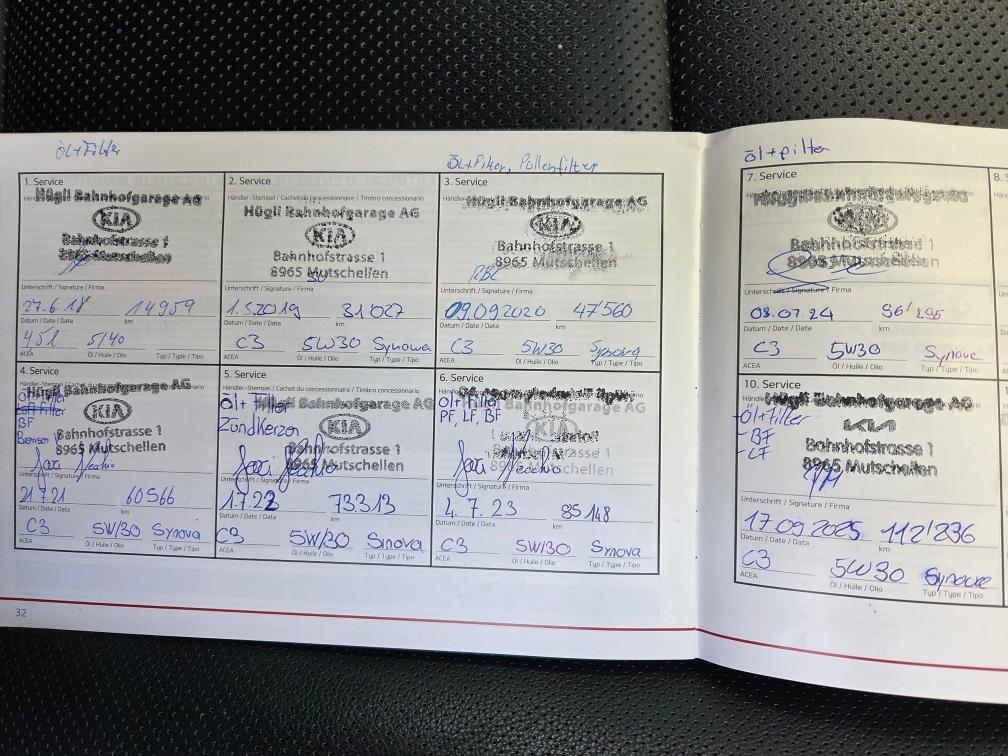 Öl+Filter
1. Service
Hügli Bahnhofgarage AG
KIA
Bahnhofstrasse 1
8965 Mutschellen
Unterschrift / Signature / Firma
27.6.18 14959
Datum / Date / Data km
4.5l 5/40
ACEA Öl / Huile / Olio Typ / Type / Tipo
2. Service
Händler-Stempel / Cachet du concessionnaire / Timbro concessionario
Hügli Bahnhofgarage AG
KIA
Bahnhofstrasse 1
8965 Mutschellen
Unterschrift / Signature / Firma
1.5.2019 31027
Datum / Date / Data km
C3 5W30 Synowa
ACEA Öl / Huile / Olio Typ / Type / Tipo
Öl+Filter, Pollenfilter
3. Service
Hügli Bahnhofgarage AG
KIA
Bahnhofstrasse 1
8965 Mutschellen
Unterschrift / Signature / Firma
09.09.2020 47560
Datum / Date / Data km
C3 5W30 Synova
ACEA Öl / Huile / Olio Typ / Type / Tipo
4. Service
Hügli Bahnhofgarage AG
KIA
BF
Bahnhofstrasse 1
8965 Mutschellen
Unterschrift / Signature / Firma
60566
Datum / Date / Data km
C3 5W/30 Synova
ACEA Öl / Huile / Olio Typ / Type / Tipo
5. Service
Händler-Stempel / Cachet du concessionnaire / Timbro concessionario
Öl+Filter
Hügli Bahnhofgarage AG
Zündkerzen
KIA
Bahnhofstrasse 1
8965 Mutschellen
Unterschrift / Signature / Firma
1.7.22 73313
Datum / Date / Data km
C3 5W/30 Sinova
ACEA Öl / Huile / Olio Typ / Type / Tipo
6. Service
Öl+Filter
PF, LF, BF
KIA
Unterschrift / Signature / Firma
4.7.23 85148
Datum / Date / Data km
C3 5W/30 Synova
ACEA Öl / Huile / Olio Typ / Type / Tipo
32
Öl+Filter
7. Service
KIA
Bahnhofstrasse 1
8965 Mutschellen
Unterschrift / Signature / Firma
03.07.24 96'195
Datum / Date / Data km
C3 5W30
ACEA Öl / Huile / Olio Typ / Type / Tipo
8.
10. Service
Hügli Bahnhofgarage AG
Öl+Filter
KIA
-BF
Bahnhofstrasse 1
-LF
8965 Mutschellen
Unterschrift / Signature / Firma
17.09.2025 112'236
Datum / Date / Data km
C3 5W30
ACEA Öl / Huile / Olio Typ / Type / Tipo